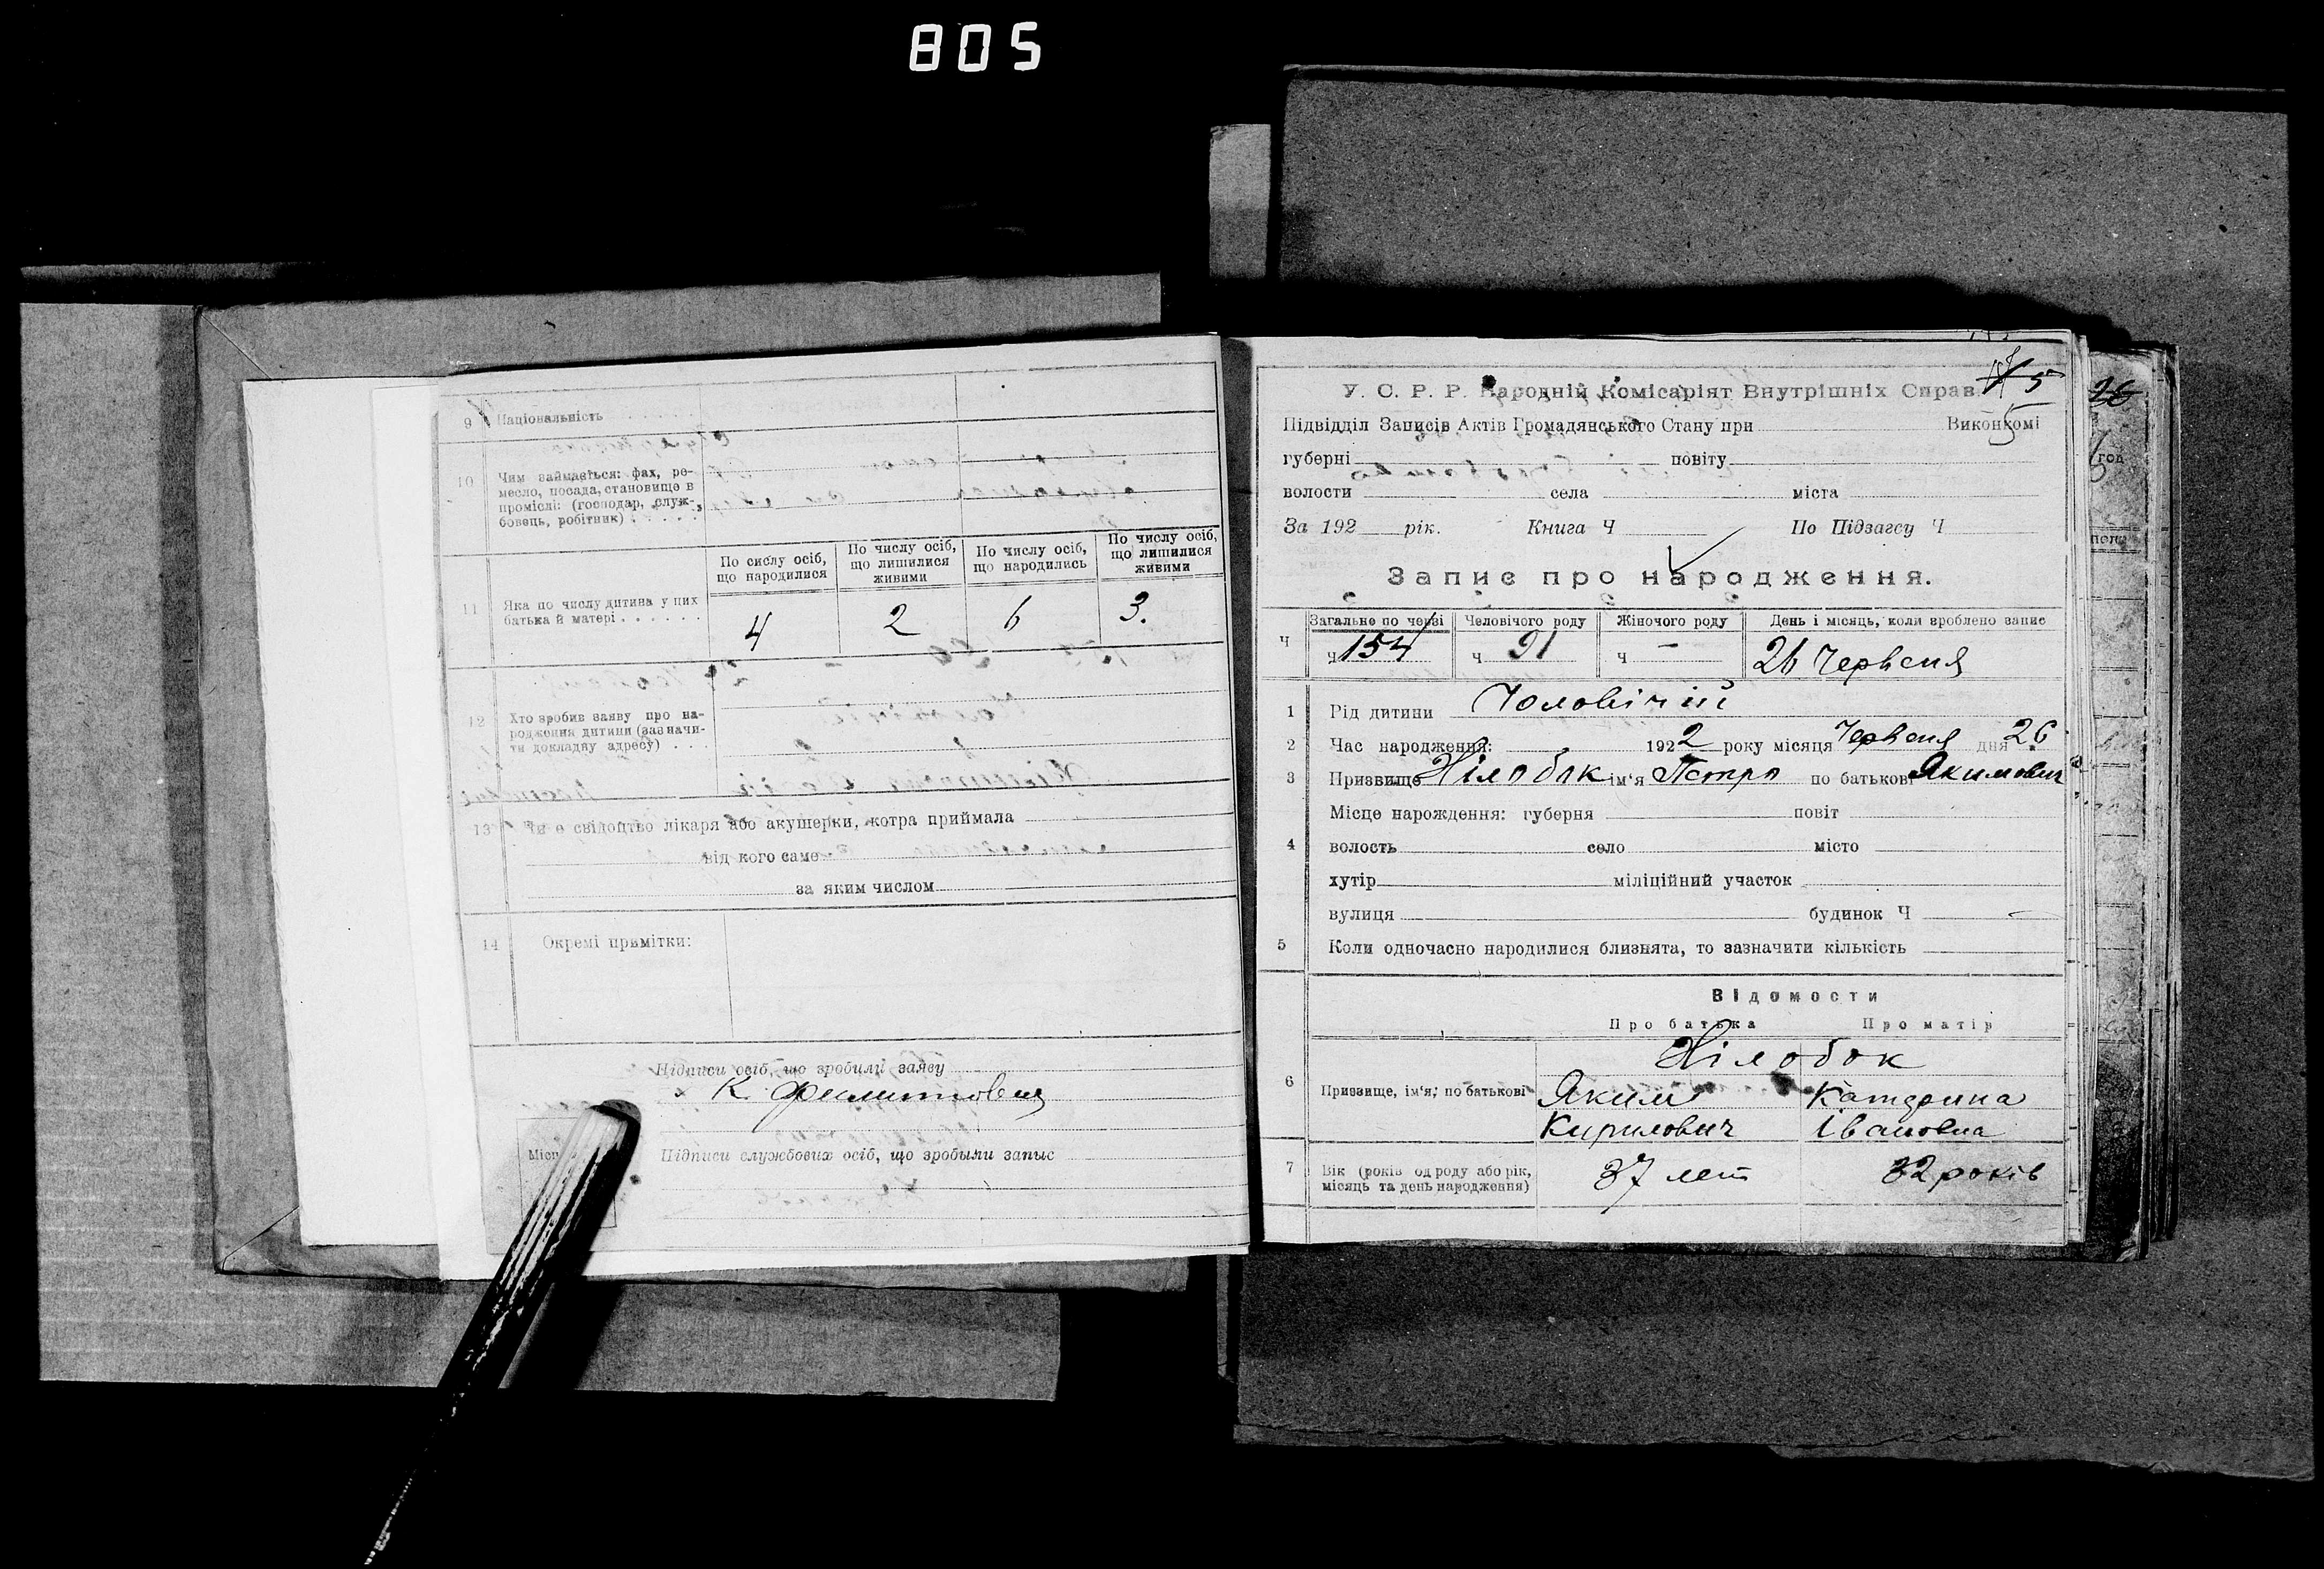 805
9 Національність
10 Чим займається: фах, ре-
месло, посада, становище в
проміслі: (господар, служ-
бовець, робітник)
По сислу осіб, що народилися
По числу осіб, що лишилися живими
По числу осіб, що народились
По числу осіб, що лишилися живими
11 Яка по числу дитина у них
батька й матері
4 2 6 3.
12 Хто зробив заяву про на-
родження дитини (зазначи-
ти докладну адресу)
13 Чи є свідоцтво лікаря або акушерки, котра приймала
від кого саме
за яким числом
14 Окремі примітки:
Підписи осіб, що зробили заяву
К.
Місц
Підписи службових осіб, що зробыли запыс
5
У. С. Р. Р. Народній Комісаріят Внутрішніх Справ.
Підвідділ Записів Актів Громадянського Стану при Виконкомі
5
губерні повіту
волости села міста
За 192 рік. Книга Ч По Підзагсу Ч
Запис про народження.
Загальне по черзі Человічого роду Жіночого роду День і місяць, коли зроблено запис
Ч ч 154 ч 91 ч — 26 Червеня
1 Рід дитини Чоловічій
2 Час народження: 1922 року місяця Червеня дня 26
3 Призвище Жілобок ім'я Петро по батькові Якимович
Місце нарождення: губерня повіт
4 волость село місто
хутір міліційний участок
вулиця будинок Ч
5 Коли одночасно народилися близнята, то зазначити кількість
Відомости
Про батька Про матір
Жілобок
6 Призвище, ім'я, по батькові Яким Катерина
Кирилович Івановна
7 Вік (років од роду або рік,
місяць та день народження) 37 лет 32 років
20
год